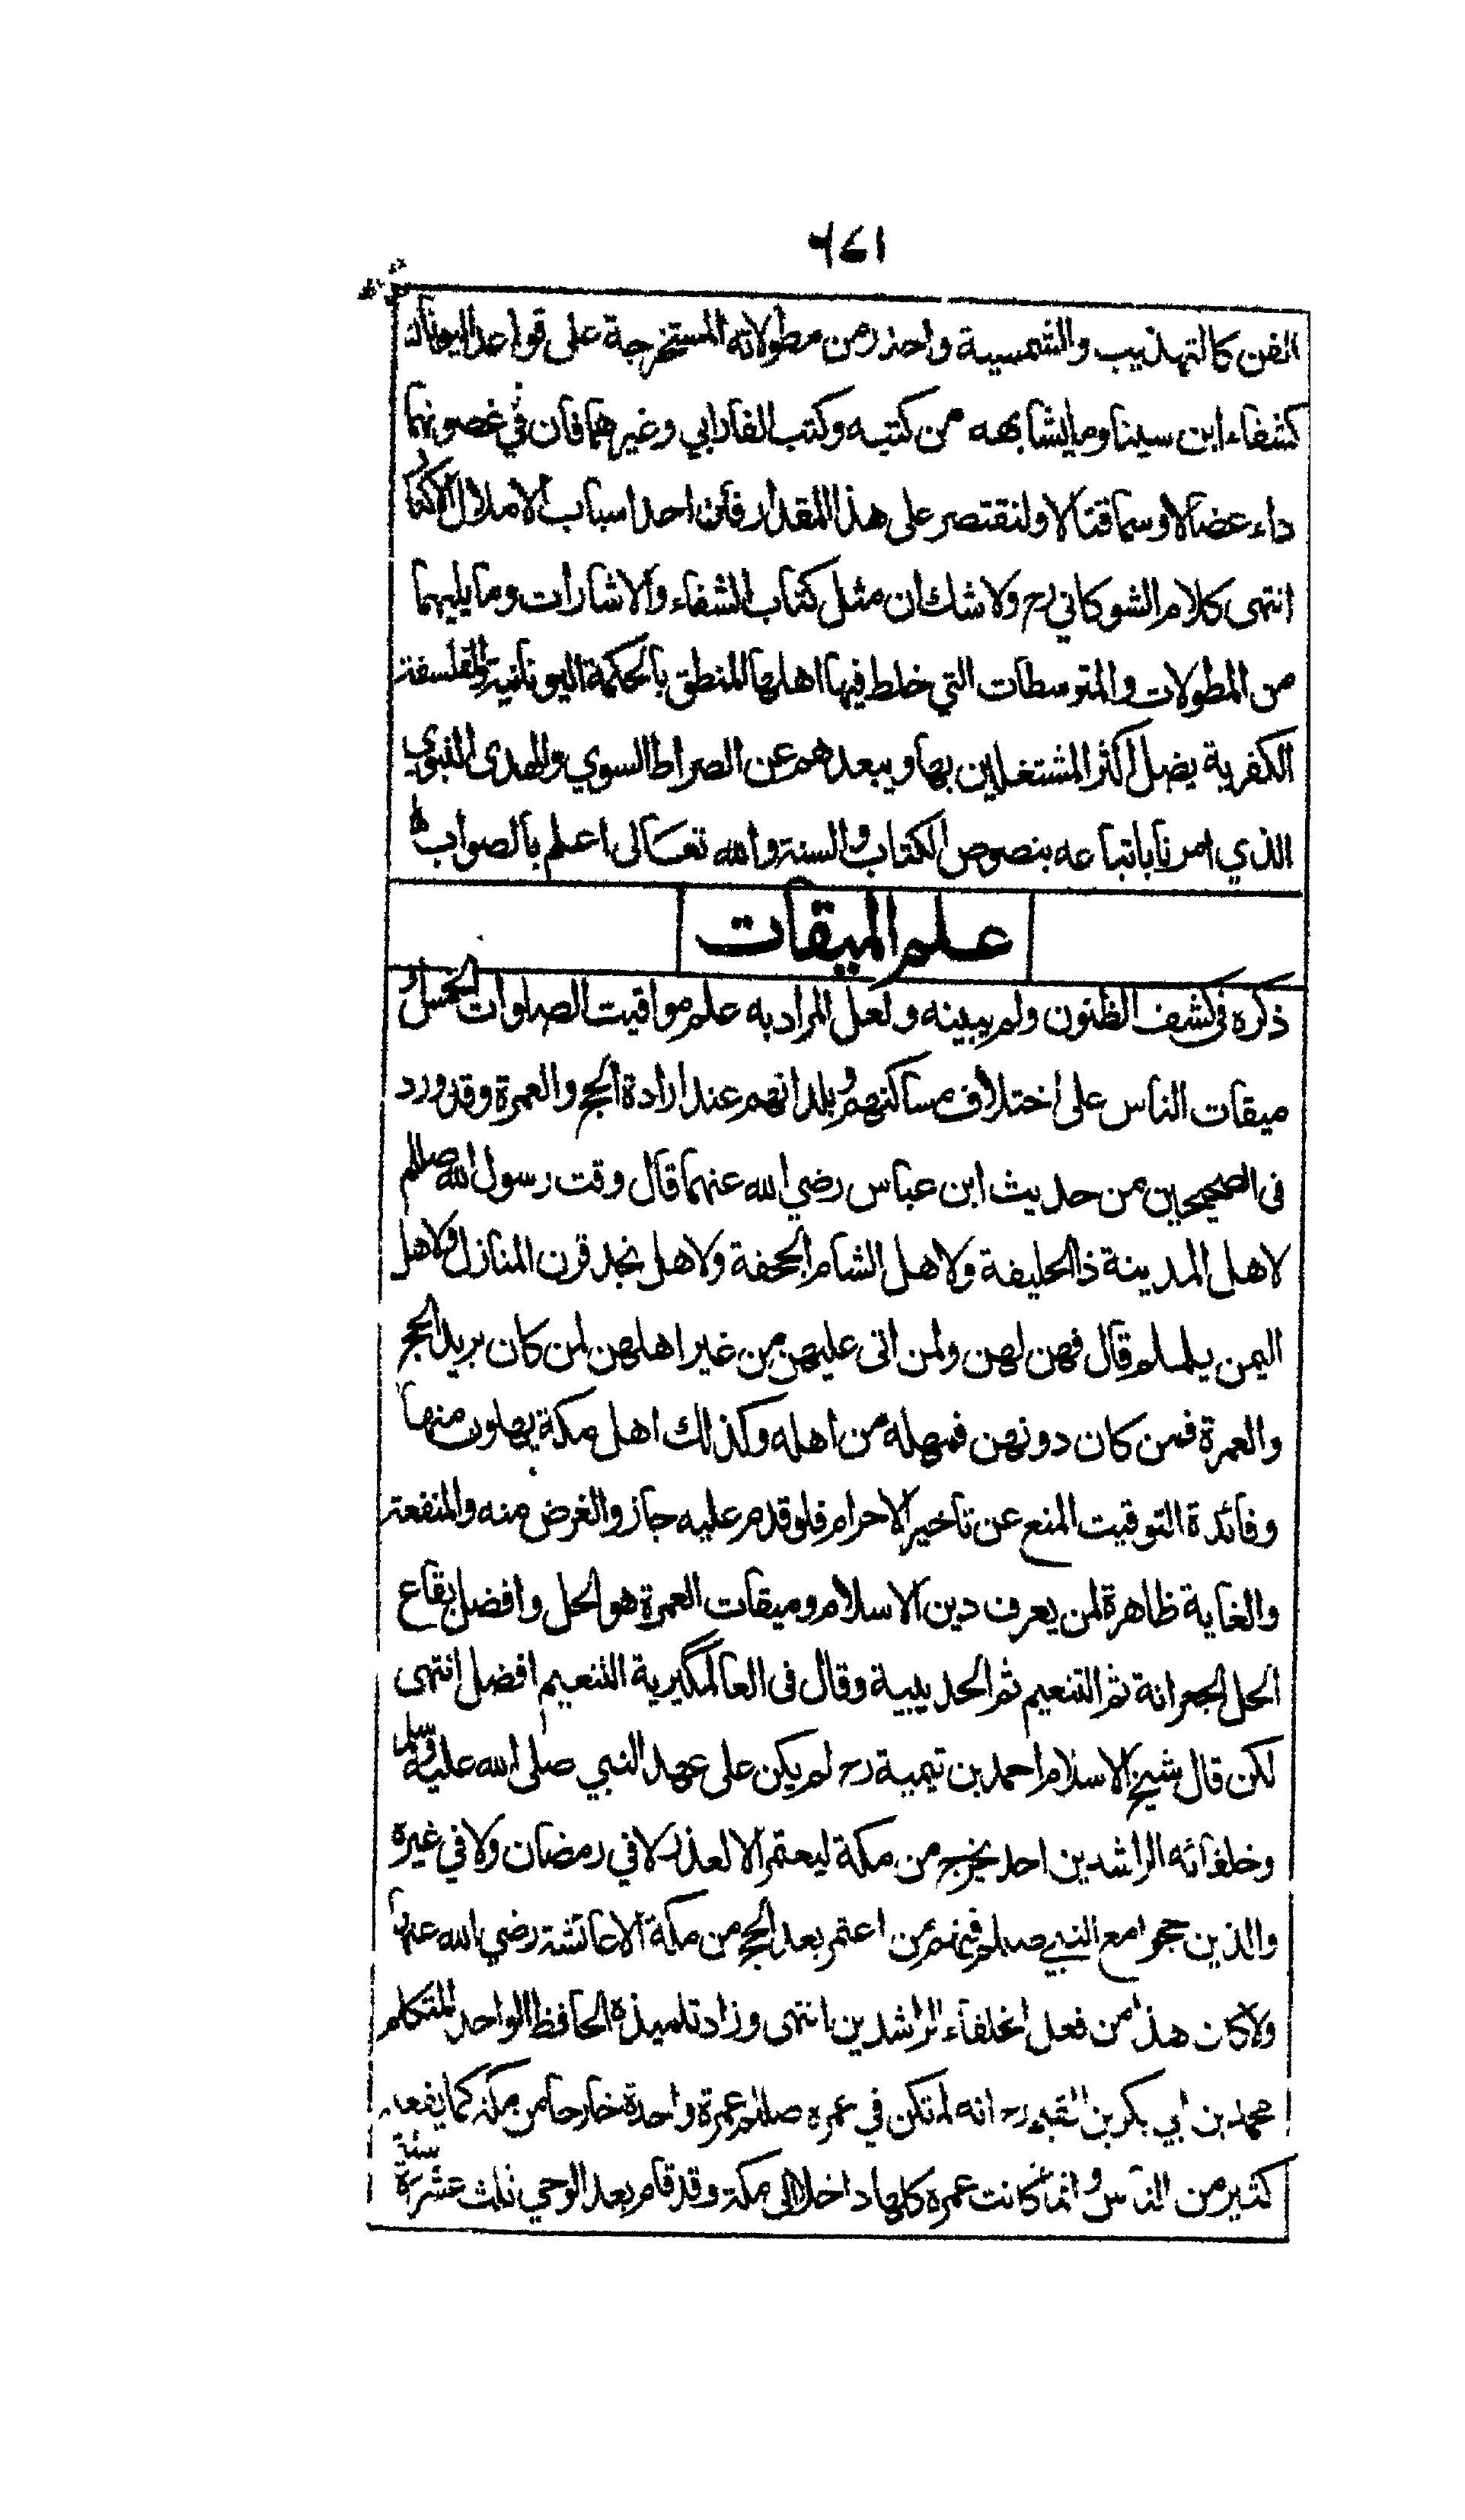 ٦٤١
الفن كالتهذيب والشمسية واحذر من مطولاته المستخرجة على قواعد اليونان
كشفاء ابن سينا وما يشابهه من كتبه وكتب الفارابي وغيرهما فان في غصونهما
داء عضالا وسما قتالا ولنقتصر على هذا المقدار فان احد اسباب الاملال الاكثار
انتهى كلام الشوكاني رح ولا شك ان مثل كتاب الشفاء والاشارات وما يليهما
من المطولات والمتوسطات التي خلط فيها اهلها المنطق بالحكمة اليونانية والفلسفة
الكفرية يضل اكثر المشتغلين بها ويبعدهم عن الصراط السوي والهدى النبوي
الذي امرنا باتباعه بنصوص الكتاب والسنة والله تعالى اعلم بالصواب
علم الميقات
ذكره في كشف الظنون ولم يبينه ولعل المراد به علم مواقيت الصلوات الخمس او
ميقات الناس على اختلاف مساكنهم وبلدانهم عند ارادة الحج والعمرة وقد ورد
في الصحيحين من حديث ابن عباس رضي الله عنهما قال وقت رسول الله صللم
لاهل المدينة ذا الحليفة ولاهل الشام الجحفة ولاهل نجد قرن المنازل ولاهل
اليمن يلملم قال فهن لهن ولمن اتى عليهن من غير اهلهن لمن كان يريد الحج
والعمرة فمن كان دونهن فمهله من اهله وكذلك اهل مكة يهلون منها
وفائدة التوقيت المنع عن تاخير الاحرام فلو قدم عليه جاز والغرض منه والمنفعة
والغاية ظاهرة لمن يعرف دين الاسلام وميقات العمرة هو الحل وافضل بقاع
الحل الجعرانة ثم التنعيم ثم الحديبية وقال في العالمگيرية التنعيم افضل انتهى
لكن قال شيخ الاسلام احمد بن تيمية رح لم يكن على عهد النبي صلى الله عليه وسلم
وخلفائه الراشدين احد يخرج من مكة ليعتمر الا لعذر لا في رمضان ولا في غيره
والذين حجوا مع النبي صللم فيهم من اعتمر بعد الحج من مكة الا عائشة رضي الله عنها
ولا كان هذا من فعل الخلفاء الراشدين انتهى وزاد تلميذه الحافظ الواحد المتكلم
محمد بن ابي بكر بن القيم رح انه لم تكن في عمره صللم عمرة واحدة خارجا من مكة كما يفعله
كثير من الناس وانما كانت عمره كلها داخلا الى مكة وقد قام بعد الوحي ثلث عشرة سنة